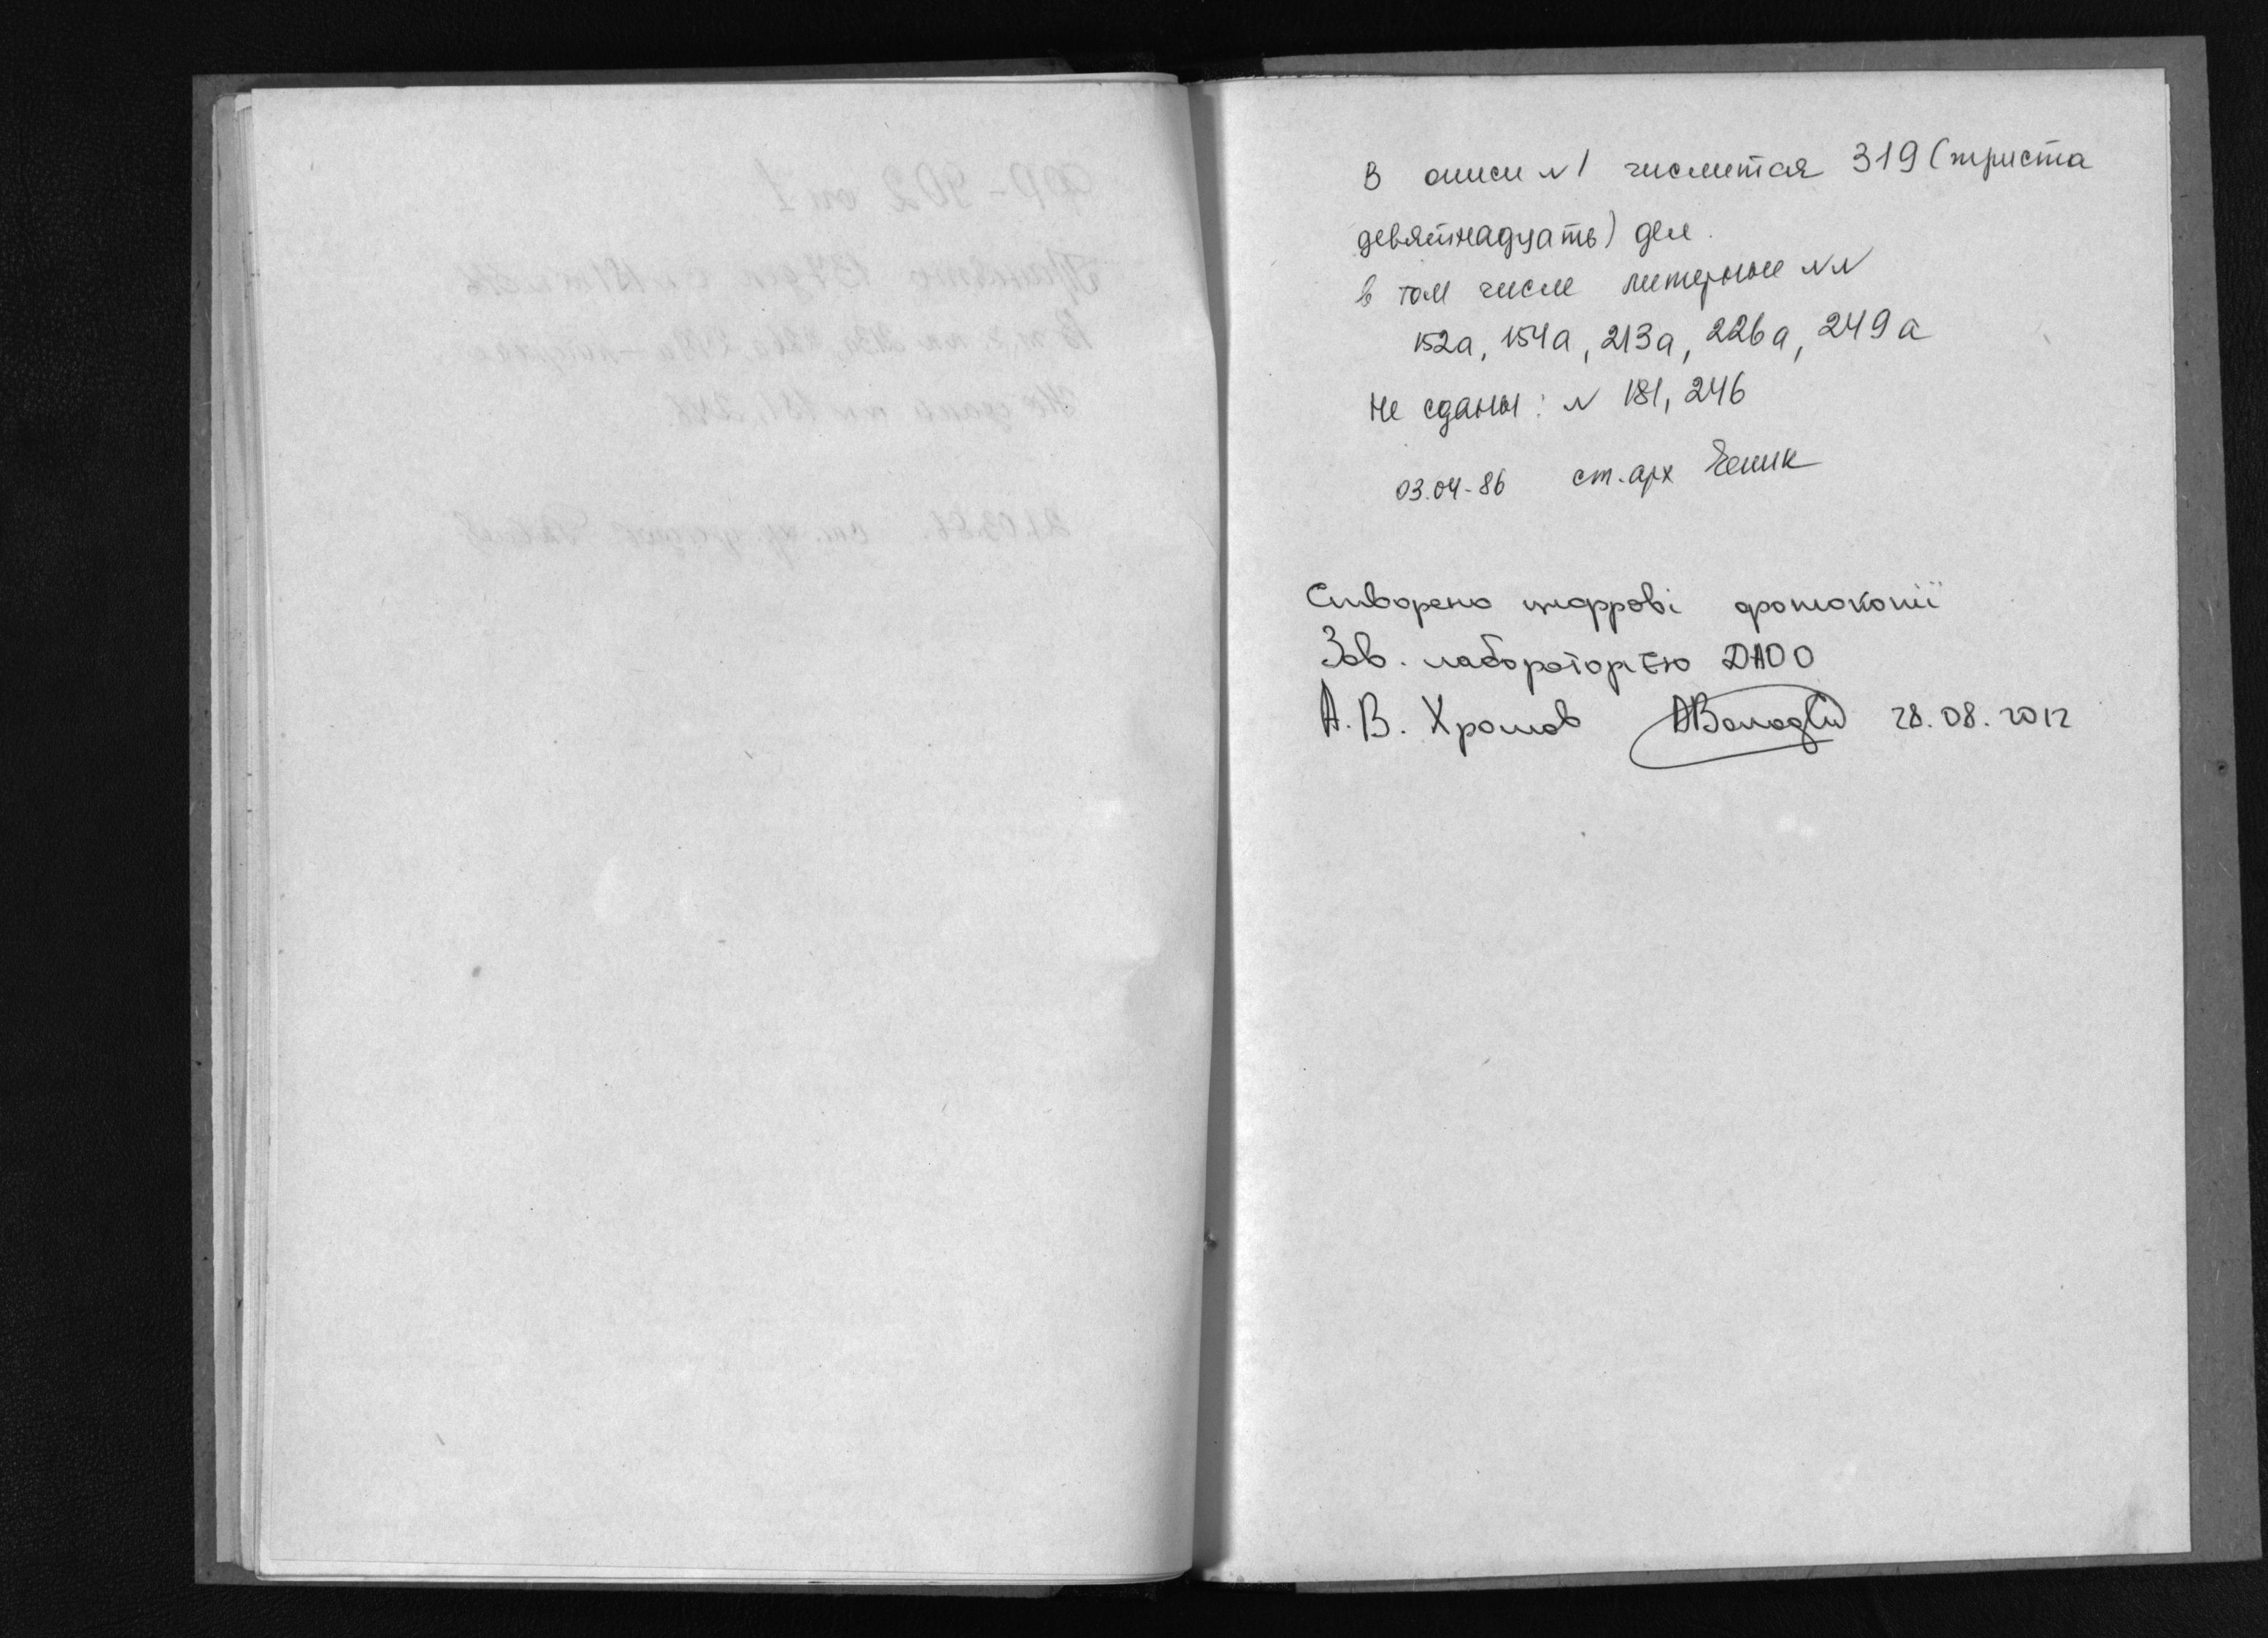 В описи №1 числится 319 (триста
девятнадцать) дел.
в том числе литерные №№
152а, 154а, 213а, 226а, 249а
Не сданы: № 181, 246
03.04-86 ст. арх
Створено цифрові фотокопії
Зав. лабораторією ДАОО
А. В. Хромов 28.08.2012